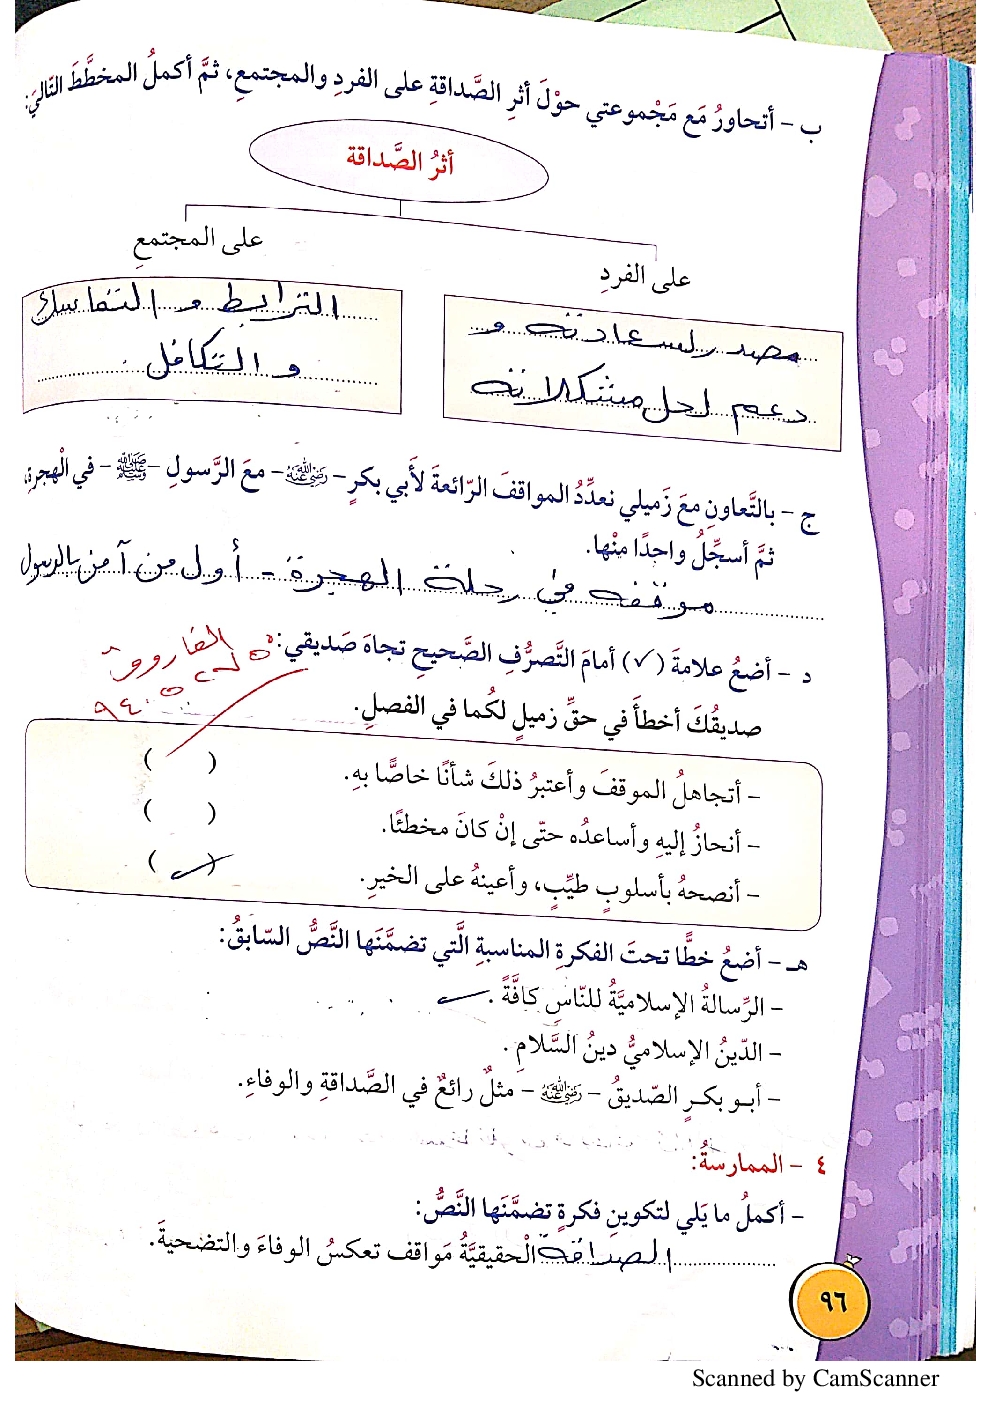 ب - أتحاورُ مَع مَجْموعتي حوْلَ أثرِ الصَّداقةِ على الفردِ والمجتمعِ، ثمَّ أكملُ المخطَّطَ التّاليَ:
أثرُ الصَّداقة
على المجتمعِ
على الفردِ
الترابط و التماسك
و التكافل
مصدر لسعادته و
دعم لحل مشكلاته
ج - بالتَّعاونِ معَ زَميلي نعدِّدُ المواقفَ الرّائعةَ لأَبي بكرٍ - رَضِيَ اللهُ عَنْهُ - معَ الرَّسولِ - ﷺ - في الْهجرةِ،
ثمَّ أسجِّلُ واحدًا منْها.
موقفه في رحلة الهجرة - أول من آمن بالرسول
د - أضعُ علامةَ (✓) أمامَ التَّصرُّفِ الصَّحيحِ تجاهَ صَديقي:
الفاروق
٩٤٠
صديقُكَ أخطأَ في حقِّ زميلٍ لكُما في الفصلِ.
- أتجاهلُ الموقفَ وأعتبرُ ذلكَ شأنًا خاصًّا بهِ. ( )
- أنحازُ إليهِ وأساعدُه حتّى إنْ كانَ مخطئًا. ( )
- أنصحهُ بأسلوبٍ طيِّبٍ، وأعينهُ على الخيرِ. (✓)
هـ - أضعُ خطًّا تحتَ الفكرةِ المناسبةِ الَّتي تضمَّنَها النَّصُّ السّابقُ:
- الرِّسالةُ الإسلاميَّةُ للنّاسِ كافَّةً.
- الدّينُ الإسلاميُّ دينُ السَّلامِ.
- أبـو بكـرٍ الصّديقُ - رَضِيَ اللهُ عَنْهُ - مثلٌ رائعٌ في الصَّداقةِ والوفاءِ.
٤ - الممارسةُ:
- أكملُ ما يَلي لتكوينِ فكرةٍ تضمَّنَها النَّصُّ:
الصداقة الْحقيقيَّةُ مَواقف تعكسُ الوفاءَ والتضحيةَ.
٩٦
Scanned by CamScanner